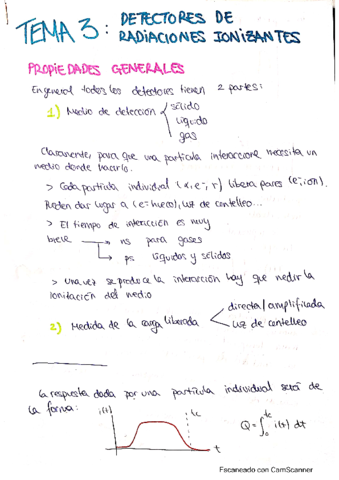 TEMA 3: DETECTORES DE
RADIACIONES IONIZANTES
PROPIEDADES GENERALES
En general todos los detectores tienen 2 partes:
1) Medio de detección sólido
líquido
gas
Claramente, para que una partícula interaccione necesita un
medio donde hacerlo.
> Cada partícula individual (α, e⁻, γ) libera pares (e⁻, ion).
Pueden dar lugar a (e⁻-hueco), luz de centelleo...
> El tiempo de interacción es muy
breve → ns para gases
→ ps líquidos y sólidos
> Una vez se produce la interacción hay que medir la
ionización del medio
2) Medida de la carga liberada directa/amplificada
luz de centelleo
La respuesta dada por una partícula individual será de
la forma: i(t) tc t Q = ∫₀^tc i(t) dt
Escaneado con CamScanner